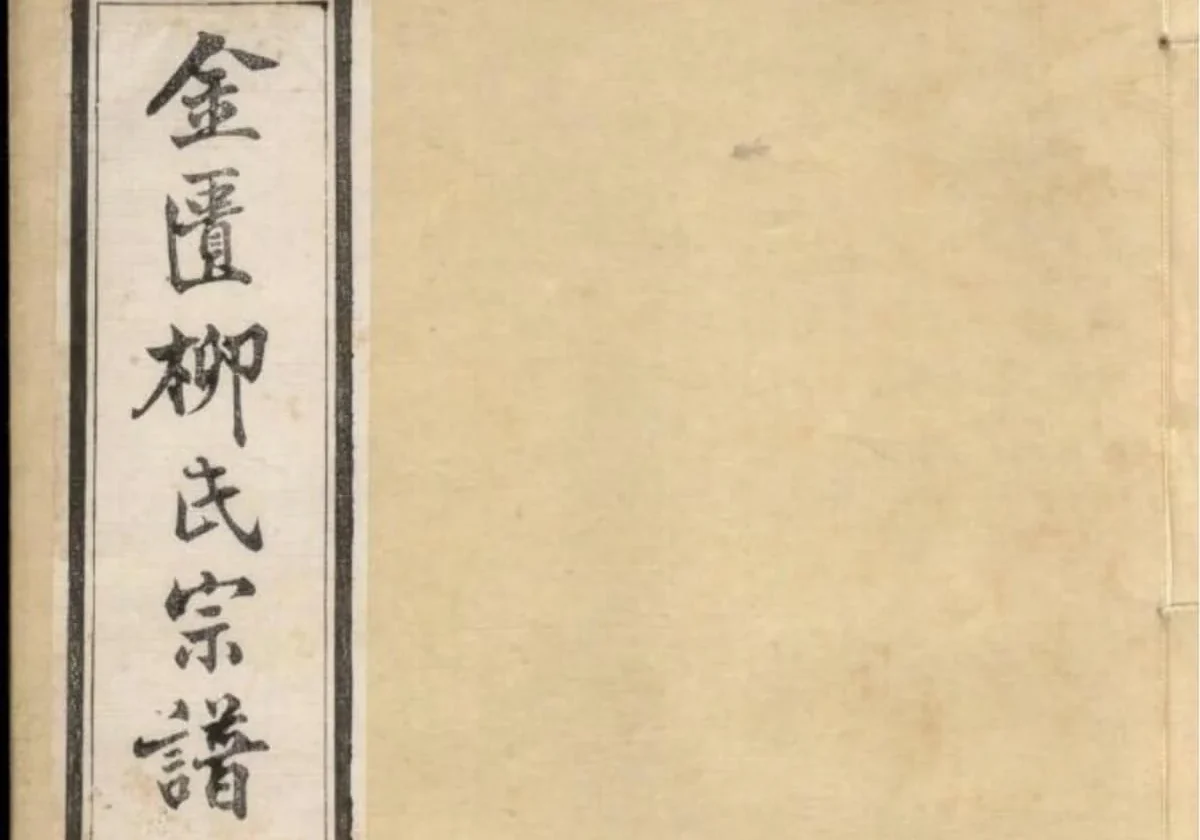 金匱柳氏宗譜